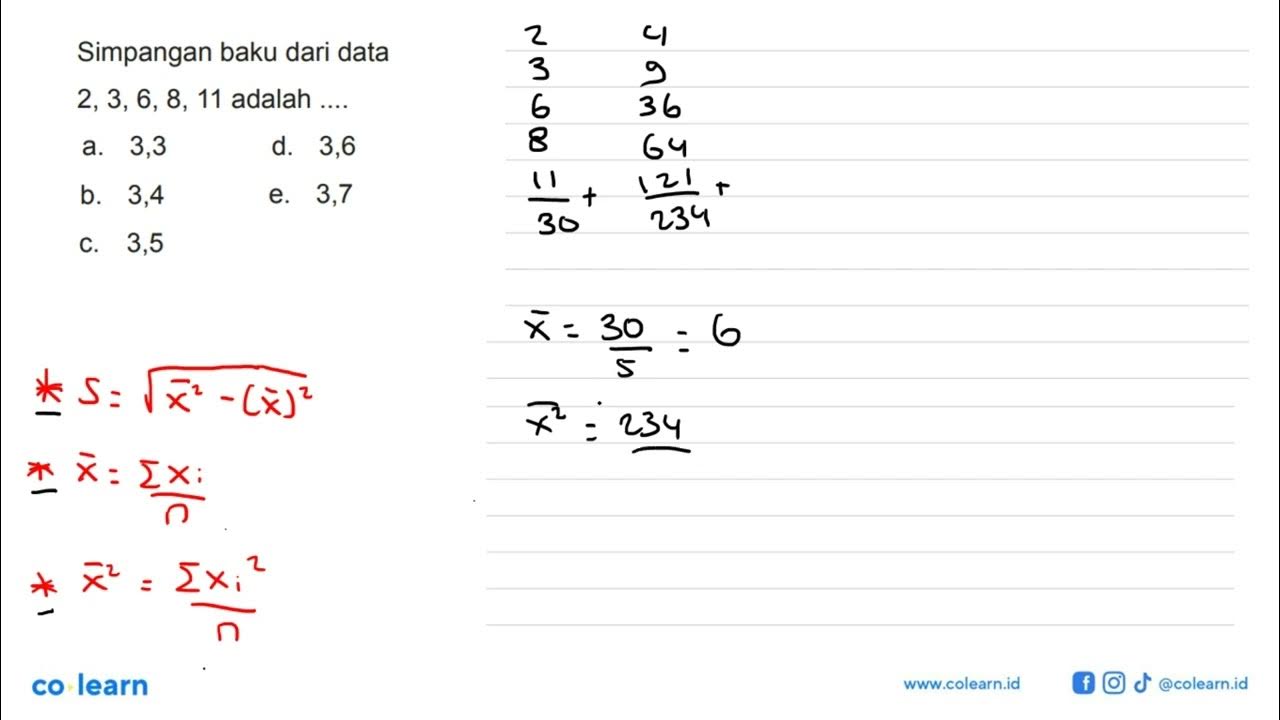 Simpangan baku dari data
2, 3, 6, 8, 11 adalah ....
a. 3,3 d. 3,6
b. 3,4 e. 3,7
c. 3,5
* S = √(x̄² - (x̄)²)
* x̄ = Σxi / n
* x̄² = Σxi² / n
2 4
3 9
6 36
8 64
11 + 121 +
30 234
x̄ = 30/5 = 6
x̄² = 234
co learn
www.colearn.id @colearn.id